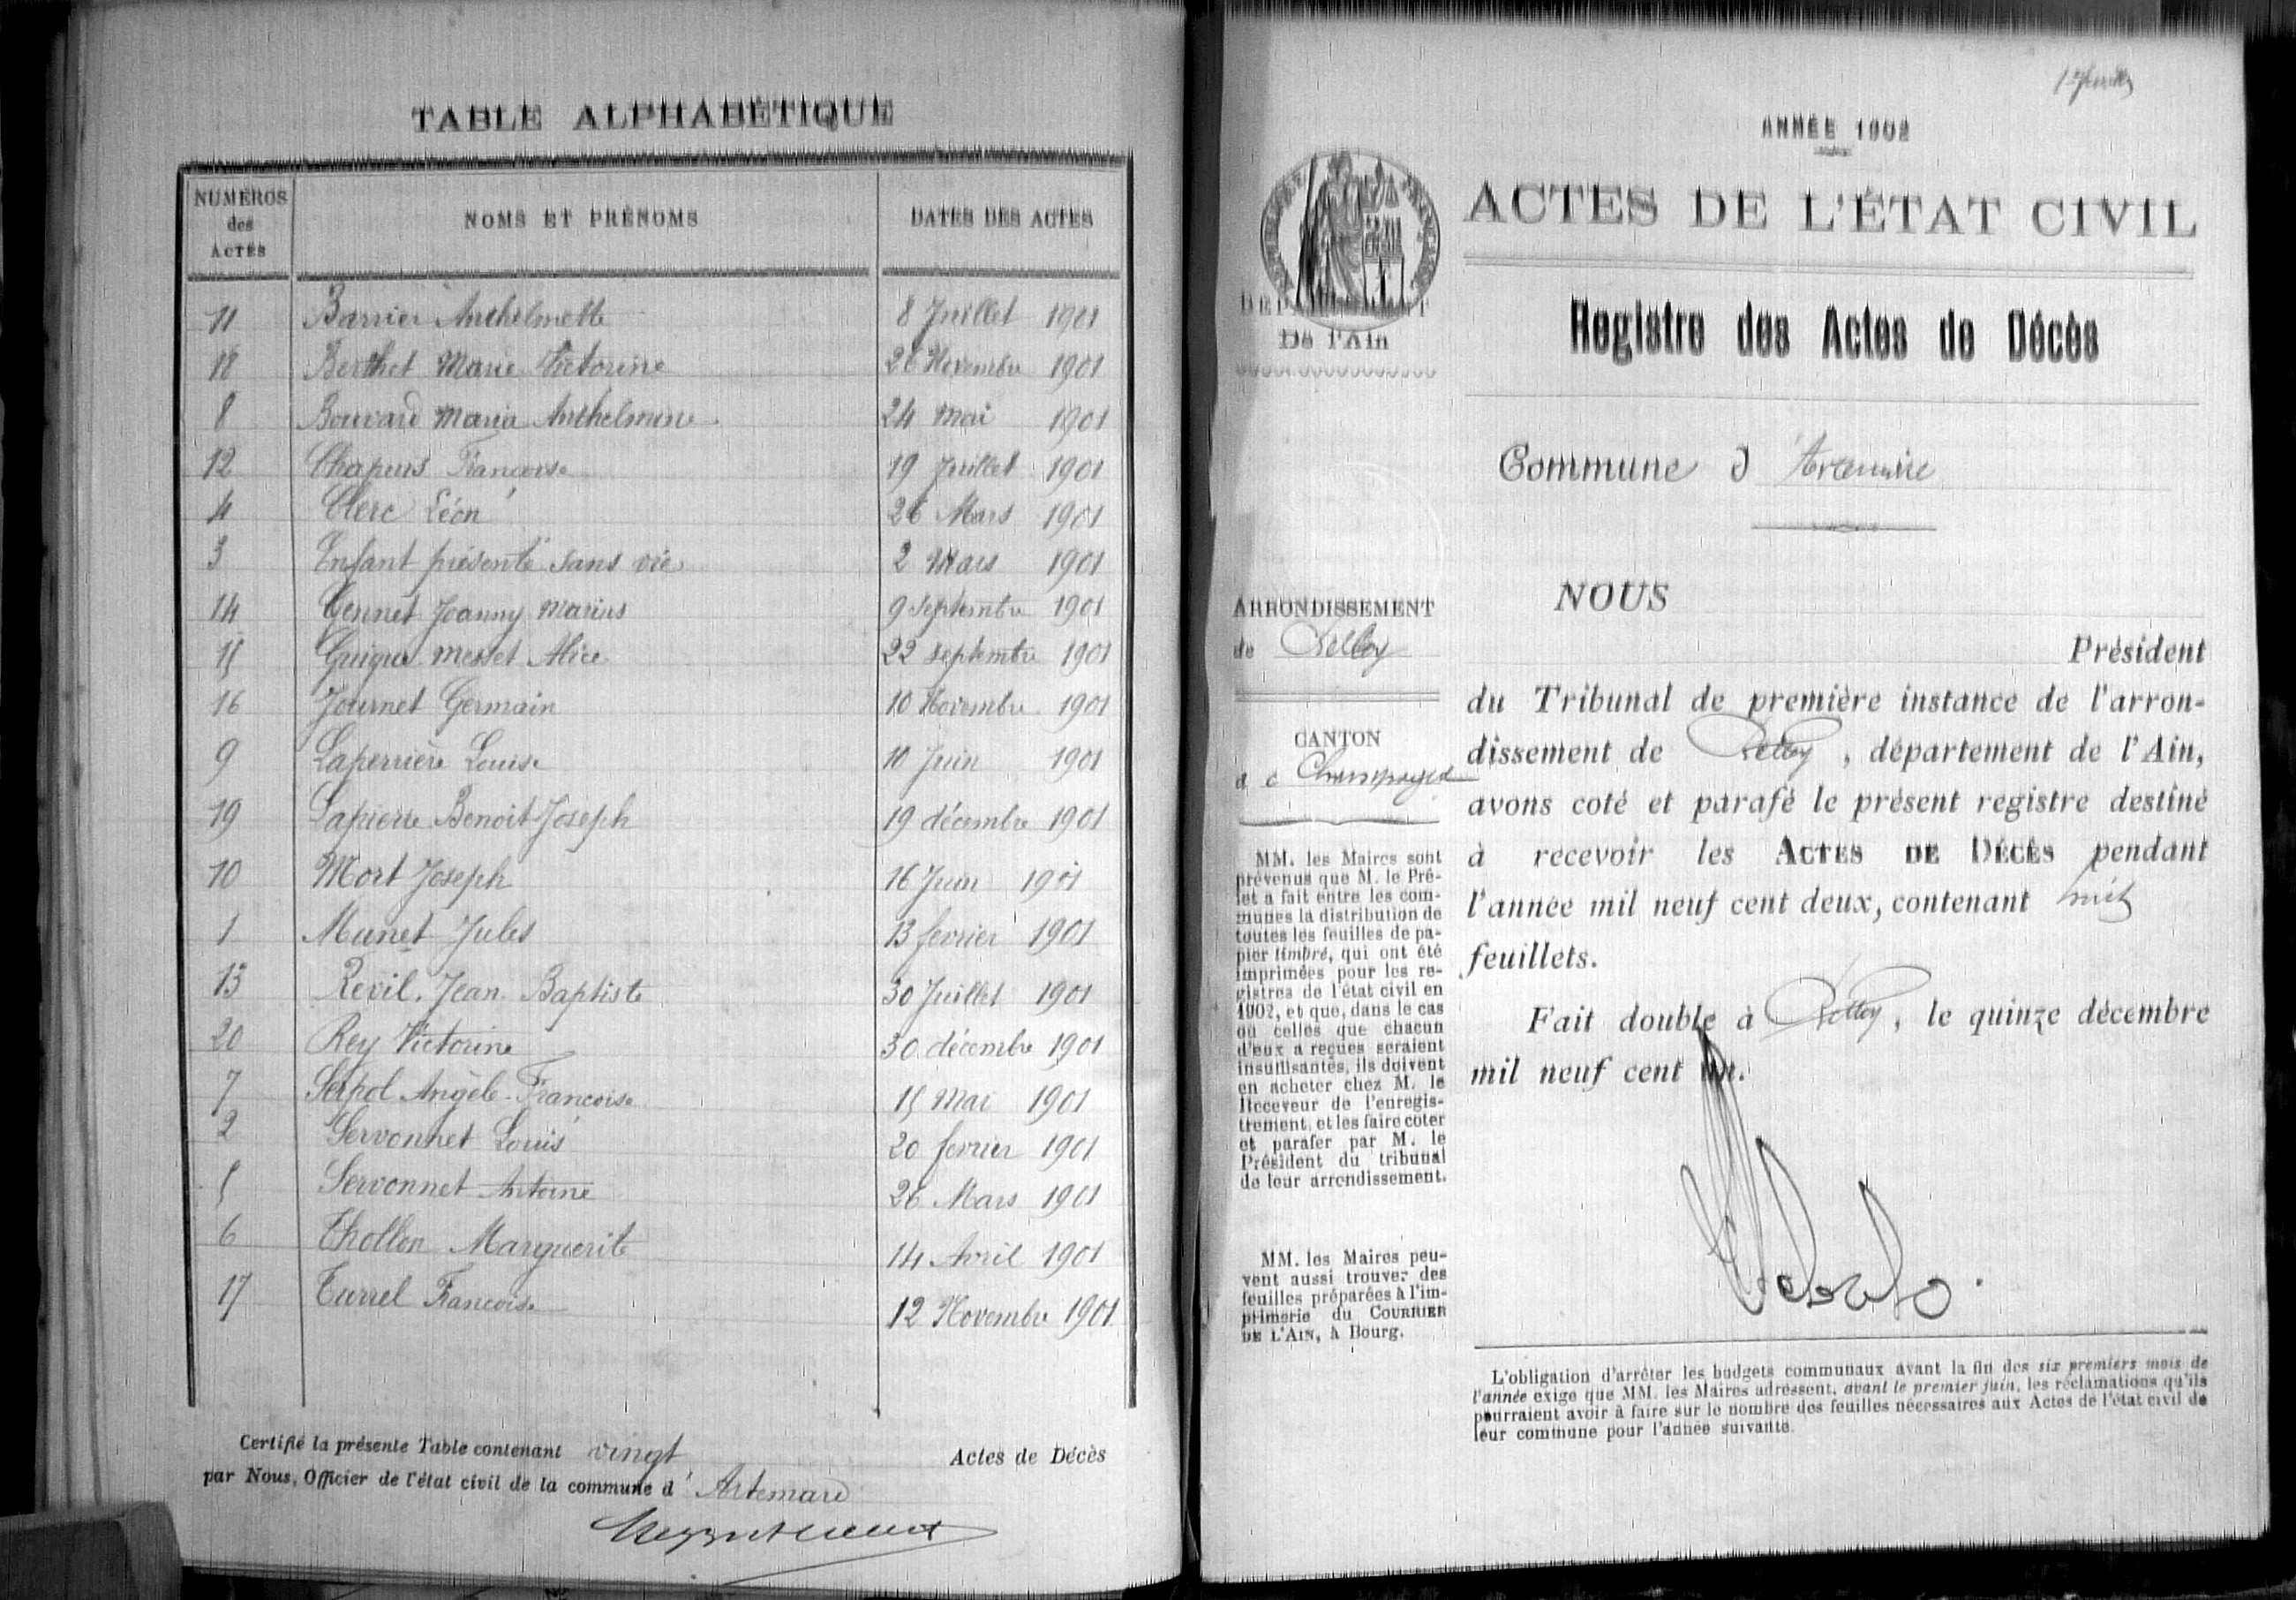 TABLE ALPHABÉTIQUE
NUMÉROS des ACTES
NOMS ET PRÉNOMS
DATES DES ACTES
11 Barrier Anthelmette 8 Juillet 1901
18 Berthet Marie Victorine 26 Novembre 1901
8 Bouvard Maria Anthelmine 24 Mai 1901
12 Chapuis Francoise 19 Juillet 1901
4 Clerc Léon 26 Mars 1901
3 Enfant présenté sans vie 2 Mars 1901
14 Gennet Joanny Marius 9 septembre 1901
15 Guigue Alice 22 septembre 1901
16 Journet Germain 10 Novembre 1901
9 Laperrière Louise 10 Juin 1901
19 Lapierre Benoit Joseph 19 décembre 1901
10 Mort Joseph 16 Juin 1901
1 Munet Jules 13 fevrier 1901
13 Revil Jean Baptiste 30 Juillet 1901
20 Rey Victorine 30 décembre 1901
7 Serpol Angèle Francoise 15 Mai 1901
2 Servonnet Louis 20 fevrier 1901
5 Servonnet Antoine 26 Mars 1901
6 Thollon Marguerite 14 Avril 1901
17 Turrel Francoise 12 Novembre 1901
Certifié la présente Table contenant vingt Actes de Décès
par Nous, Officier de l'état civil de la commune d' Artemare
ANNÉE 1902
ACTES DE L'ÉTAT CIVIL
DÉPARTEMENT
De l'Ain
Registre des Actes de Décès
Commune d' Artemare
ARRONDISSEMENT
de Belley
CANTON
de Champagne
MM. les Maires sont
prévenus que M. le Pré-
fet a fait entre les com-
munes la distribution de
toutes les feuilles de pa-
pier timbré, qui ont été
imprimées pour les re-
gistres de l'état civil en
1902, et que, dans le cas
où celles que chacun
d'eux a reçues seraient
insuffisantes, ils doivent
en acheter chez M. le
Receveur de l'enregis-
trement, et les faire coter
et parafer par M. le
Président du tribunal
de leur arrondissement.
MM. les Maires peu-
vent aussi trouver des
feuilles préparées à l'im-
primerie du COURRIER
DE L'AIN, à Bourg.
NOUS
Président
du Tribunal de première instance de l'arron-
dissement de Belley, département de l'Ain,
avons coté et parafé le présent registre destiné
à recevoir les ACTES DE DÉCÈS pendant
l'année mil neuf cent deux, contenant huit
feuillets.
Fait double à Belley, le quinze décembre
mil neuf cent un.
L'obligation d'arrêter les budgets communaux avant la fin des six premiers mois de
l'année exige que MM. les Maires adressent, avant le premier juin, les réclamations qu'ils
pourraient avoir à faire sur le nombre des feuilles nécessaires aux Actes de l'état civil de
leur commune pour l'année suivante.